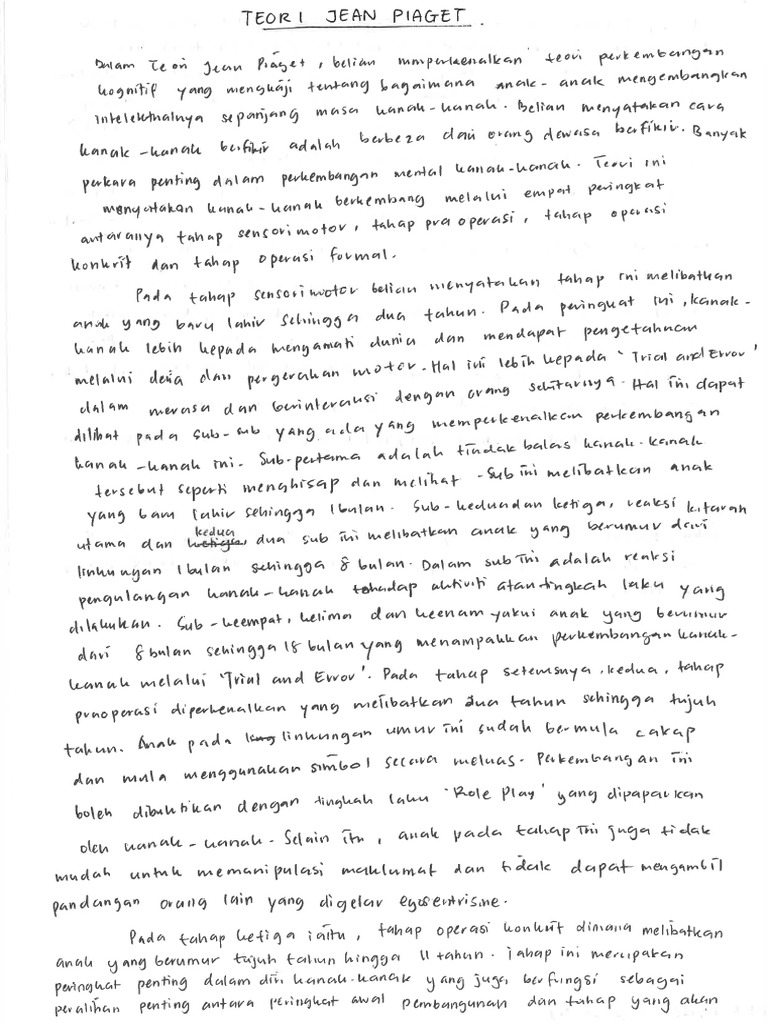 TEORI JEAN PIAGET.
Dalam Teori Jean Piaget, belian mmperkenalkan teori perkembangan
kognitif yang mengkaji tentang bagaimana anak-anak mengembangkan
intelektualnya sepanjang masa kanak-kanak. Belian menyatakan cara
kanak-kanak berfikir adalah berbeza dari orang dewasa berfikir. Banyak
perkara penting dalam perkembangan mental kanak-kanak. Teori ini
menyatakan kanak-kanak berkembang melalui empat peringkat
antaranya tahap sensorimotor, tahap pra operasi, tahap operasi
konkrit dan tahap operasi formal.
Pada tahap sensorimotor belian menyatakan tahap ini melibatkan
anak yang baru lahir sehingga dua tahun. Pada peringkat ini, kanak-
kanak lebih kepada mengamati dunia dan mendapat pengetahuan
melalui deria dan pergerakan motor. Hal ini lebih kepada 'Trial and Error'
dalam merasa dan berinteraksi dengan orang sekitarnya. Hal ini dapat
dilihat pada sub-sub yang ada yang memperkenalkan perkembangan
kanak-kanak ini. Sub-pertama adalah tindak balas kanak-kanak
tersebut seperti menghisap dan melihat. Sub ini melibatkan anak
yang baru lahir sehingga 1 bulan. Sub-kedua dan ketiga, reaksi kitaran
utama dan kedua, dua sub ini melibatkan anak yang berumur dari
linkungan 1 bulan sehingga 8 bulan. Dalam sub ini adalah reaksi
pengulangan kanak-kanak terhadap aktiviti atau tingkah laku yang
dilakukan. Sub-keempat, kelima dan keenam yakni anak yang berumur
dari 8 bulan sehingga 18 bulan yang menampakkan perkembangan kanak-
kanak melalui 'Trial and Error'. Pada tahap seterusnya, kedua, tahap
praoperasi diperkenalkan yang melibatkan dua tahun sehingga tujuh
tahun. Anak pada linkungan umur ini sudah bermula cakap
dan mula menggunakan simbol secara meluas. Perkembangan ini
boleh dibuktikan dengan tingkah laku 'Role Play' yang dipaparkan
oleh kanak-kanak. Selain itu, anak pada tahap ini juga tidak
mudah untuk memanipulasi maklumat dan tidak dapat mengambil
pandangan orang lain yang digelar egosentrisme.
Pada tahap ketiga iaitu, tahap operasi konkrit dimana melibatkan
anak yang berumur tujuh tahun hingga 11 tahun. Tahap ini merupakan
peringkat penting dalam diri kanak-kanak yang juga berfungsi sebagai
peralihan penting antara peringkat awal pembangunan dan tahap yang akan